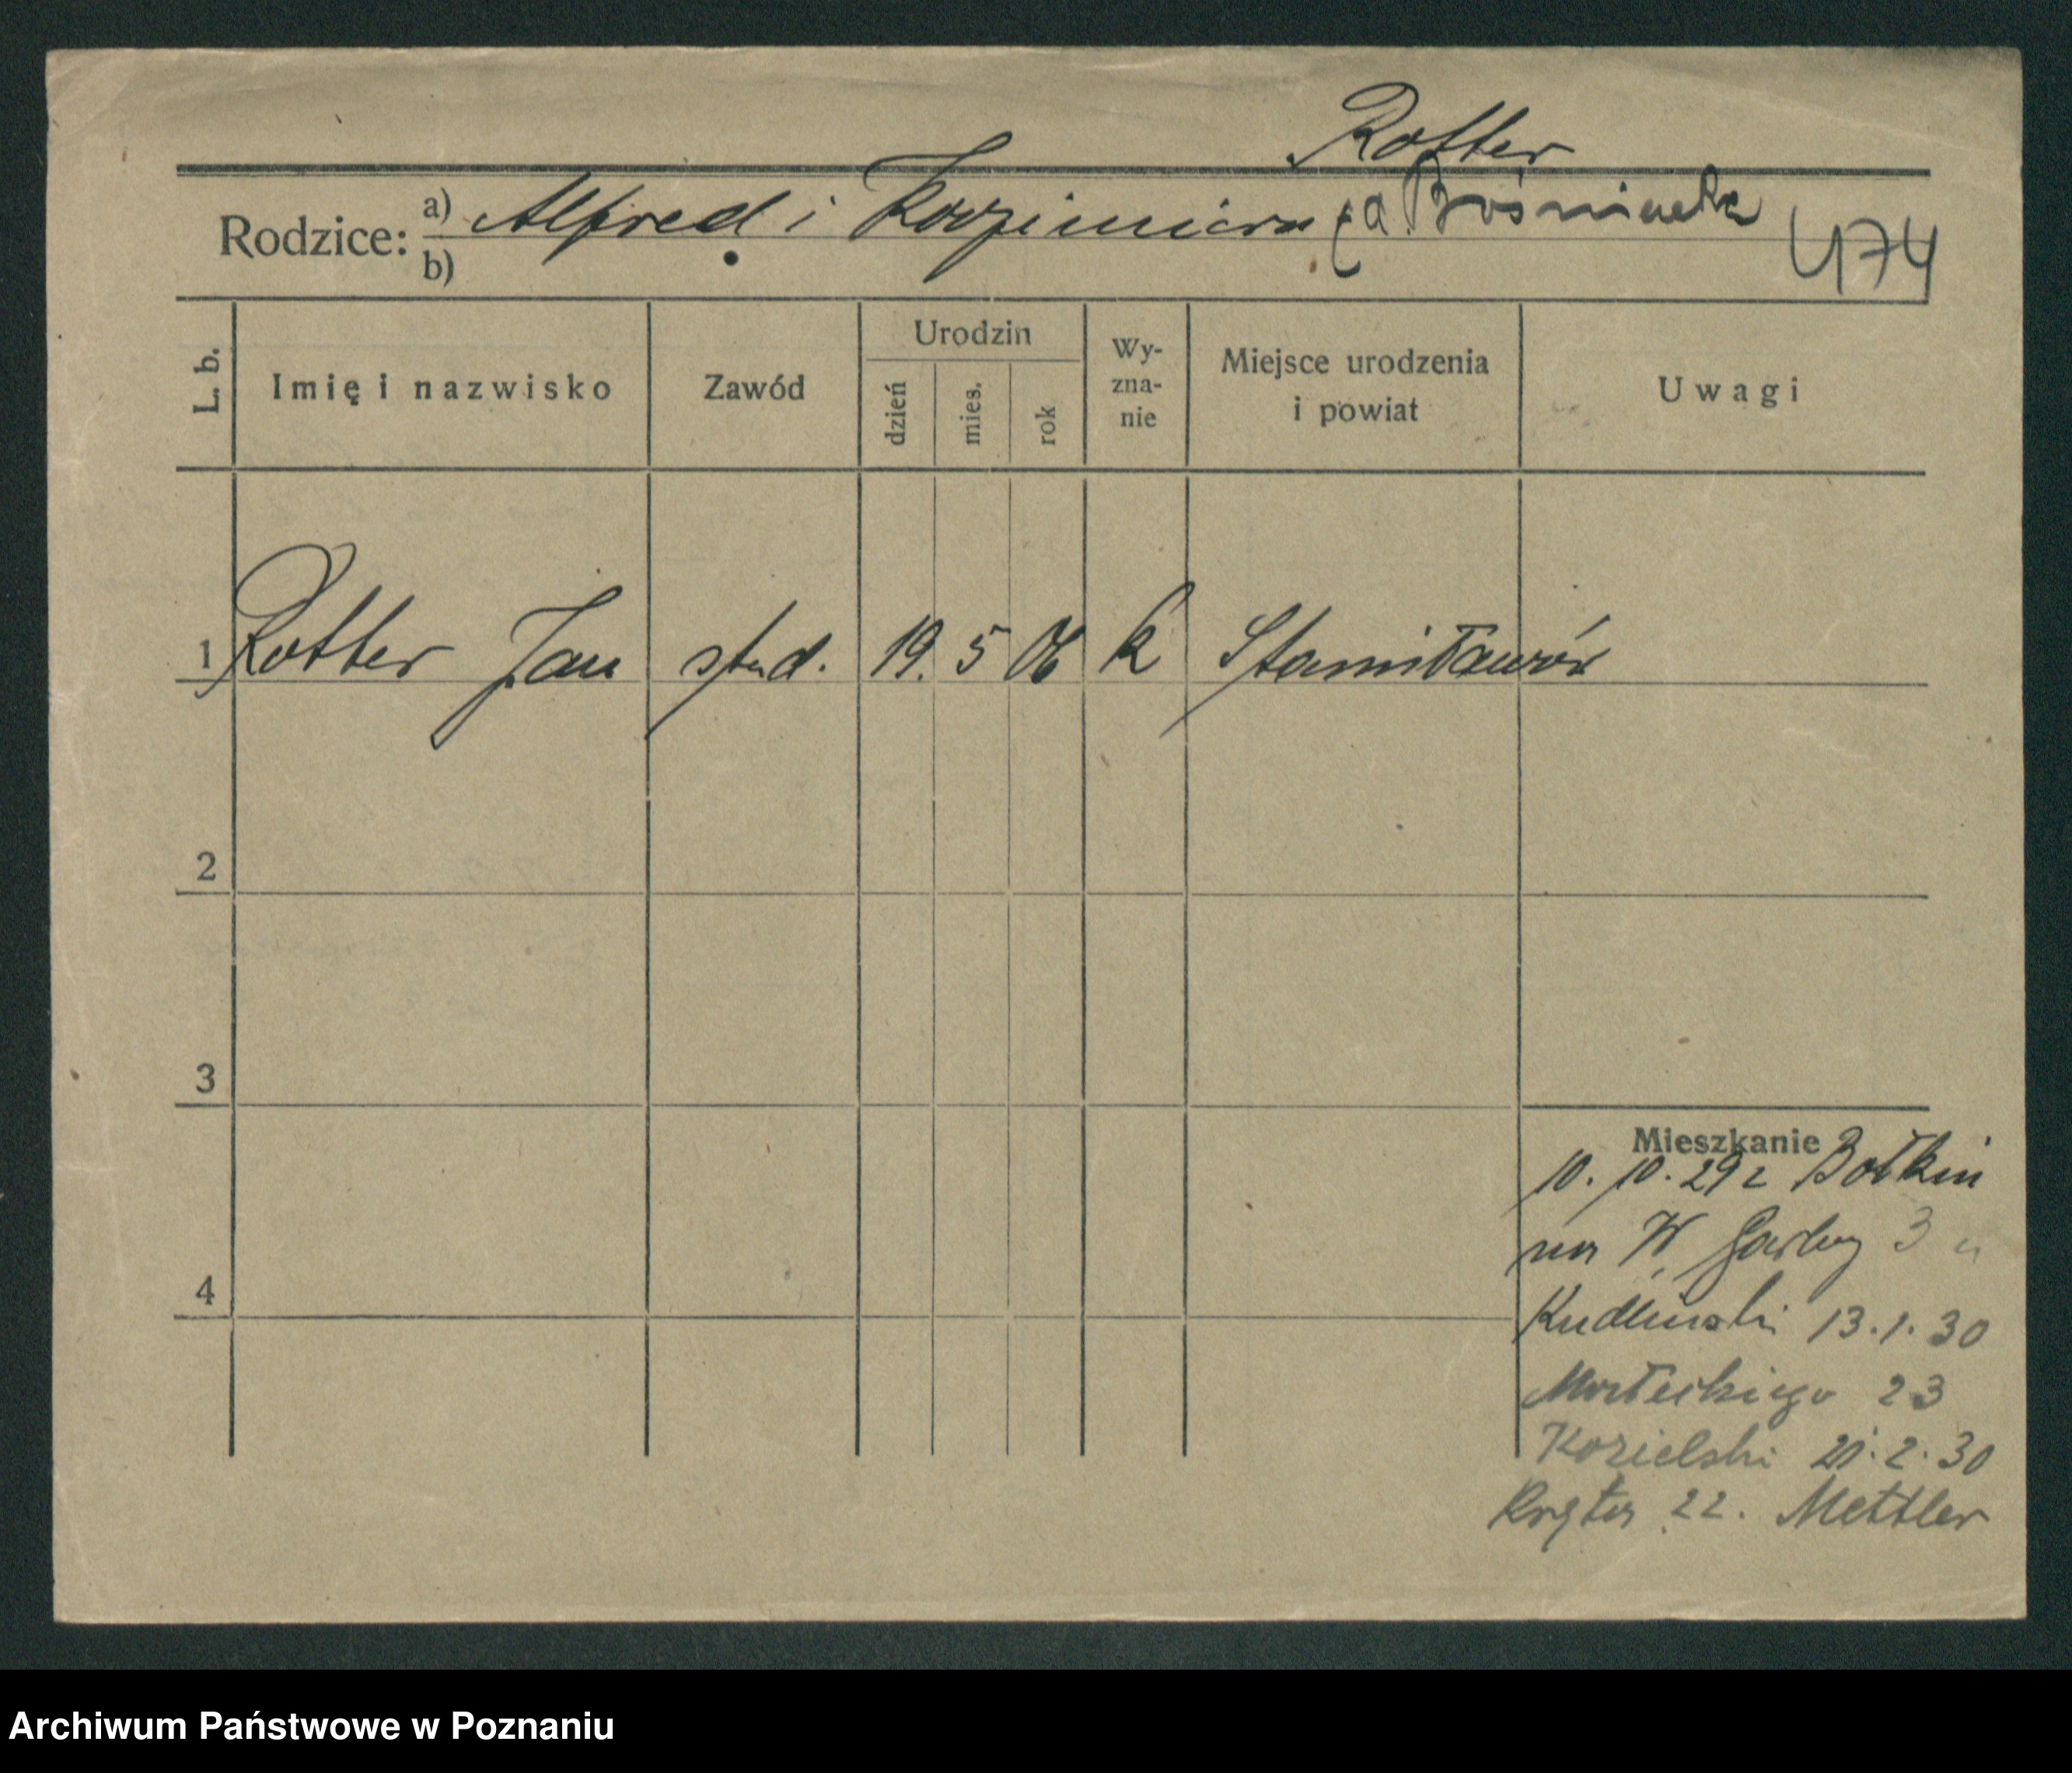 Rotter
Rodzice: a) Alfred i Kazimiera
b)
474
L. b. Imię i nazwisko Zawód Urodzin dzień mies. rok Wy-zna-nie Miejsce urodzenia i powiat Uwagi
1 Rotter Jan stud. 19. 5 06 k Stanisławów
2
3
4
Mieszkanie
10. 10. 29
W. Garbary 3
13.1.30
23
Kozielski 21.2.30
Kręta 22. Mettler
Archiwum Państwowe w Poznaniu